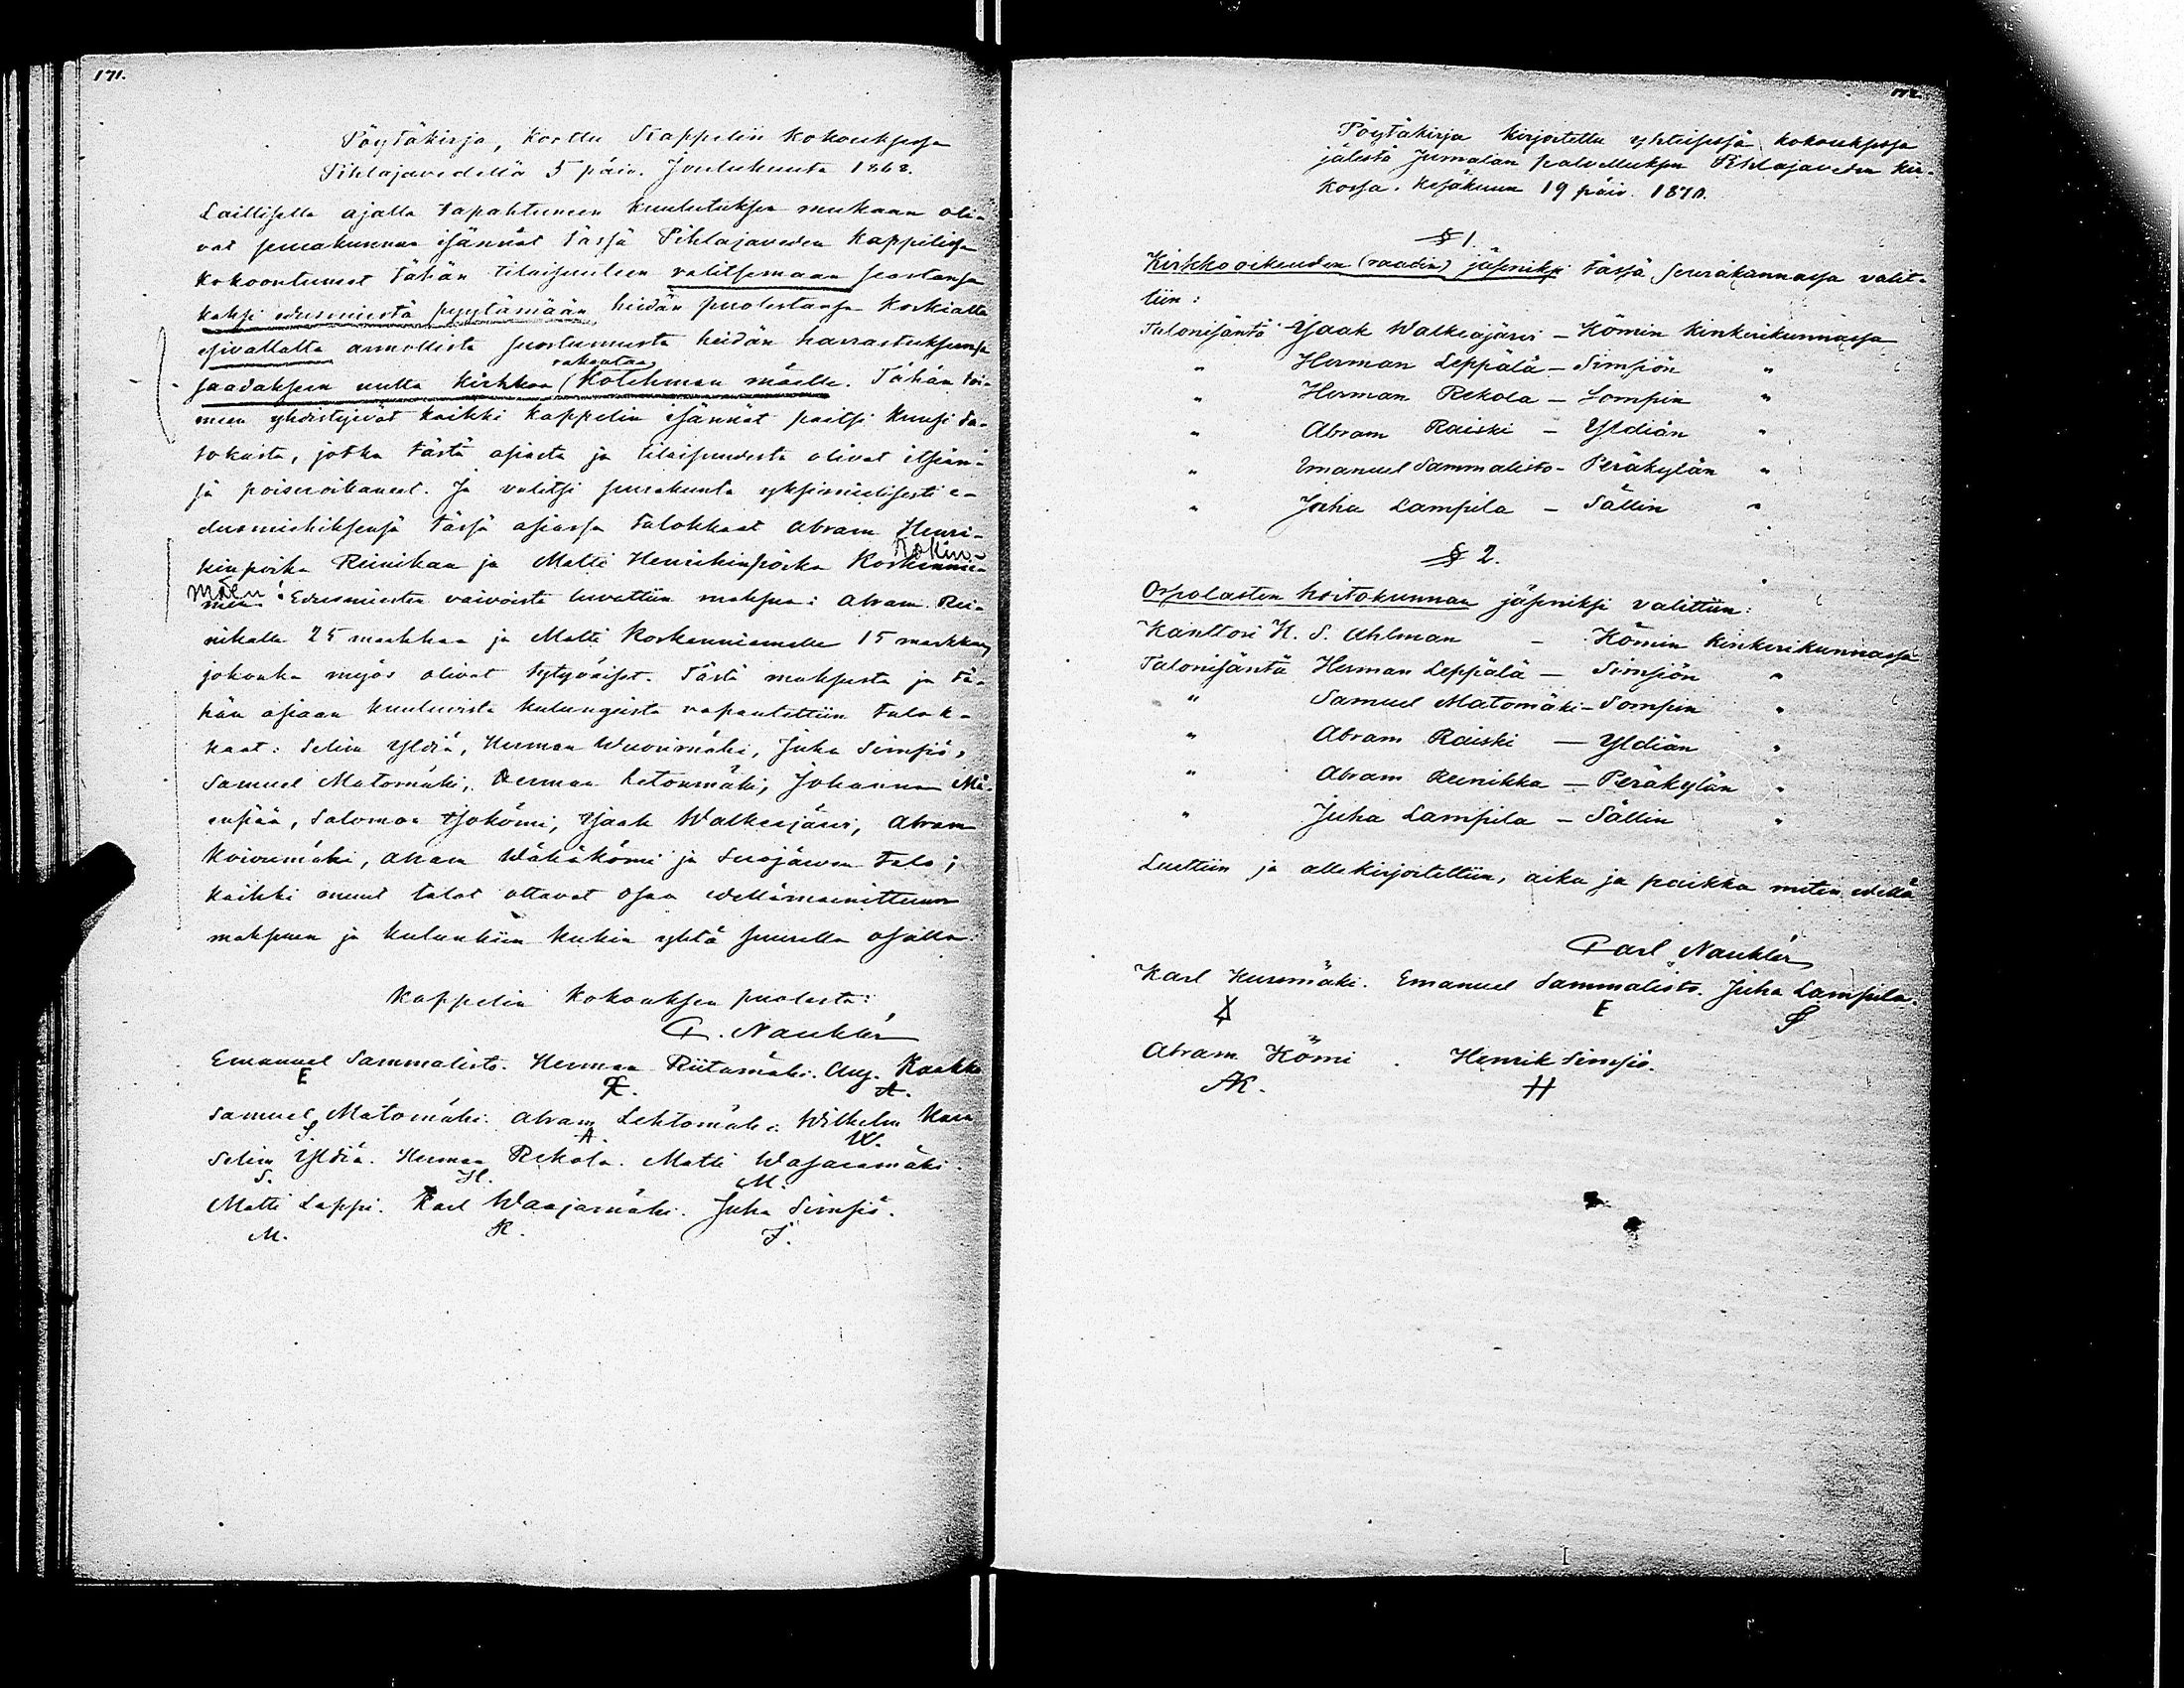 171.
Pöytäkirja, koottu Kappelin kokouksessa
Pihlajavedellä 5 päiv. Joulukuuta 1868.
Laillisella ajalla tapahtuneen kuulutuksen mukaan oli-
vat seurakunnan isännät tässä Pihlajaveden Kappelissa
kokoontuneet tähän tilaisuuteen valitsemaan seastansa
kaksi edusmiestä pyytämään heidän puolestansa korkialta
esivallalta armollista suostumusta heidän harrastuksensa
rakentaa
saadaksen uutta kirkkoa (Kotehman mäelle. Tähän toi-
meen yhdistyivät kaikki kappelin isännät paitsi kuusi ta-
lokasta, jotka tästä asiasta ja tilaisuudesta olivat itsiän-
sä poisvoikaneet. Ja valitsi seurakunta yksimielisesti e-
dusmiehiksensä tässä asiassa talokkaat Abram Henri-
Kokin-
kinpoika Reinikan ja Matti Henrikinpoika Koskennie-
mäen
men. Edusmiesten vaivoista luvattiin maksaa: Abram Rei-
nikalle 25 markkaa ja Matti Koskenniemelle 15 markkaa,
johonka myös olivat tytyväiset. Tästä maksusta ja tä-
hän asiaan kuuluvista kulungeista vapautettiin talok-
kaat: Selim Yldiä, Herman Wuorimäki, Juha Simsiö,
Samuel Matomäki, Herman Ketonmäki, Johannes Mä-
enpää, Salomon Isokömi, Isaak Walkeajärvi, Abram
Koivumäki, Abram Wähäkömi ja Suojärven talo;
kaikki muut talot ottavat osaa edellämainittuun
maksuun ja kulunkiin kukin yhtä suurella osalla.
Kappelin kokouksen puolesta:
C. Nauklér
Emanuel Sammalisto. Herman Riitamäki. Aug. Kaakko
E A.
Samuel Matomäki. Abram Lehtomäki. Wilhelm
S A W.
Selim Yldiä. Herman Rekola. Matti Wasaramäki.
S. H. M.
Matti Lappi. Karl Waajamäki. Juha Simsiö.
M. K. J.
172.
Pöytäkirja kirjoitettu yhteisessä kokouksessa
jälestä Jumalan palveluksen Pihlajaveden kir-
kossa. Kesäkuun 19 päiv. 1870.
§ 1.
Kirkkooikeuden (raadin) jäseniksi tässä seurakunnassa valit-
tiin:
Talonisäntä Isaak Walkeajärvi – Kömin kinkerikunnassa
" Herman Leppälä – Simsiön "
" Herman Rekola – Sompin "
" Abram Raiski – Yldiän "
" Emanuel Sammalisto – Peräkylän "
" Juha Lampila – Sällin "
§ 2.
Orpolasten hoitokunnan jäseniksi valittiin:
Kanttori K. S. Ahlman – Kömin kinkerikunnassa
Talonisäntä Herman Leppälä – Simsiön "
" Samuel Matomäki – Sompin "
" Abram Raiski – Yldiän "
" Abram Reinikka – Peräkylän "
" Juha Lampila – Sällin "
Luettiin ja allekirjoitettiin, aika ja paikka miten edellä
Carl Nauklér
Karl Kursmäki. Emanuel Sammalisto. Juha Lampila.
E S
Abram Kömi. Henrik Simsiö.
AK. H